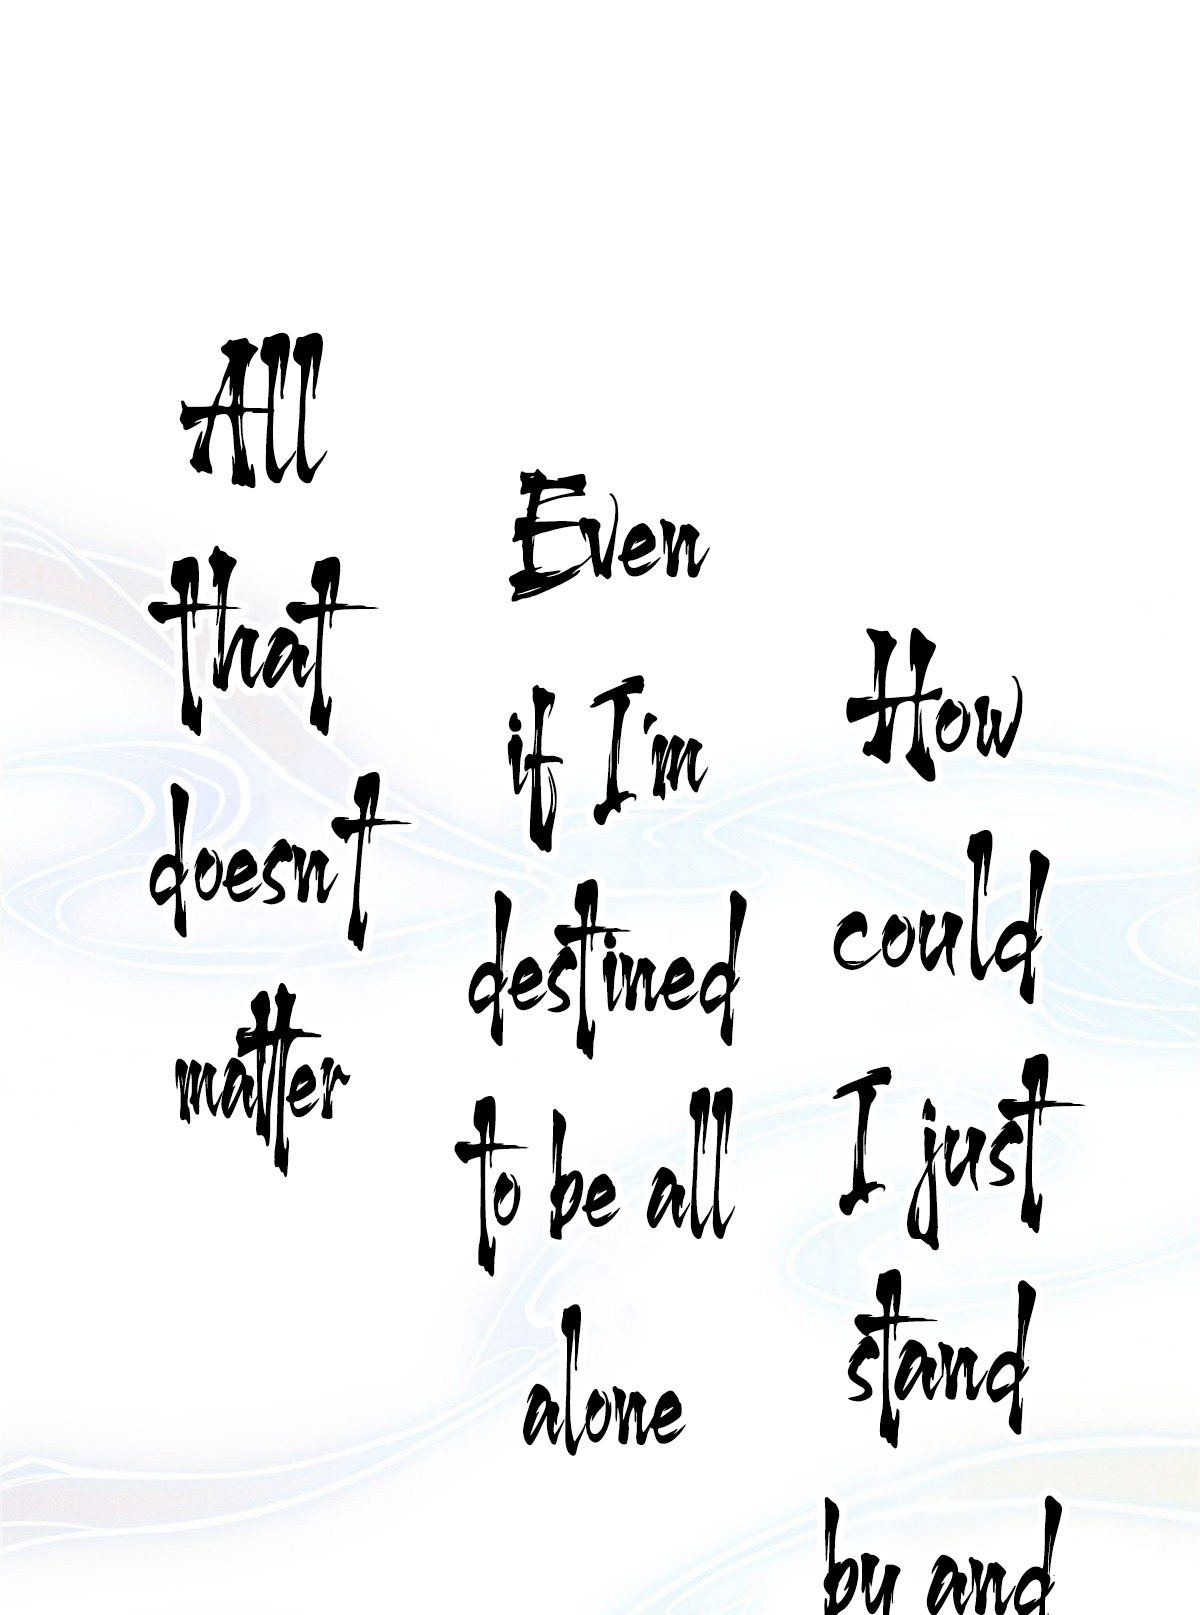 All
that
doesn't
matter
Even
if I'm
destined
to be all
alone
How
could
I just
stand
by and